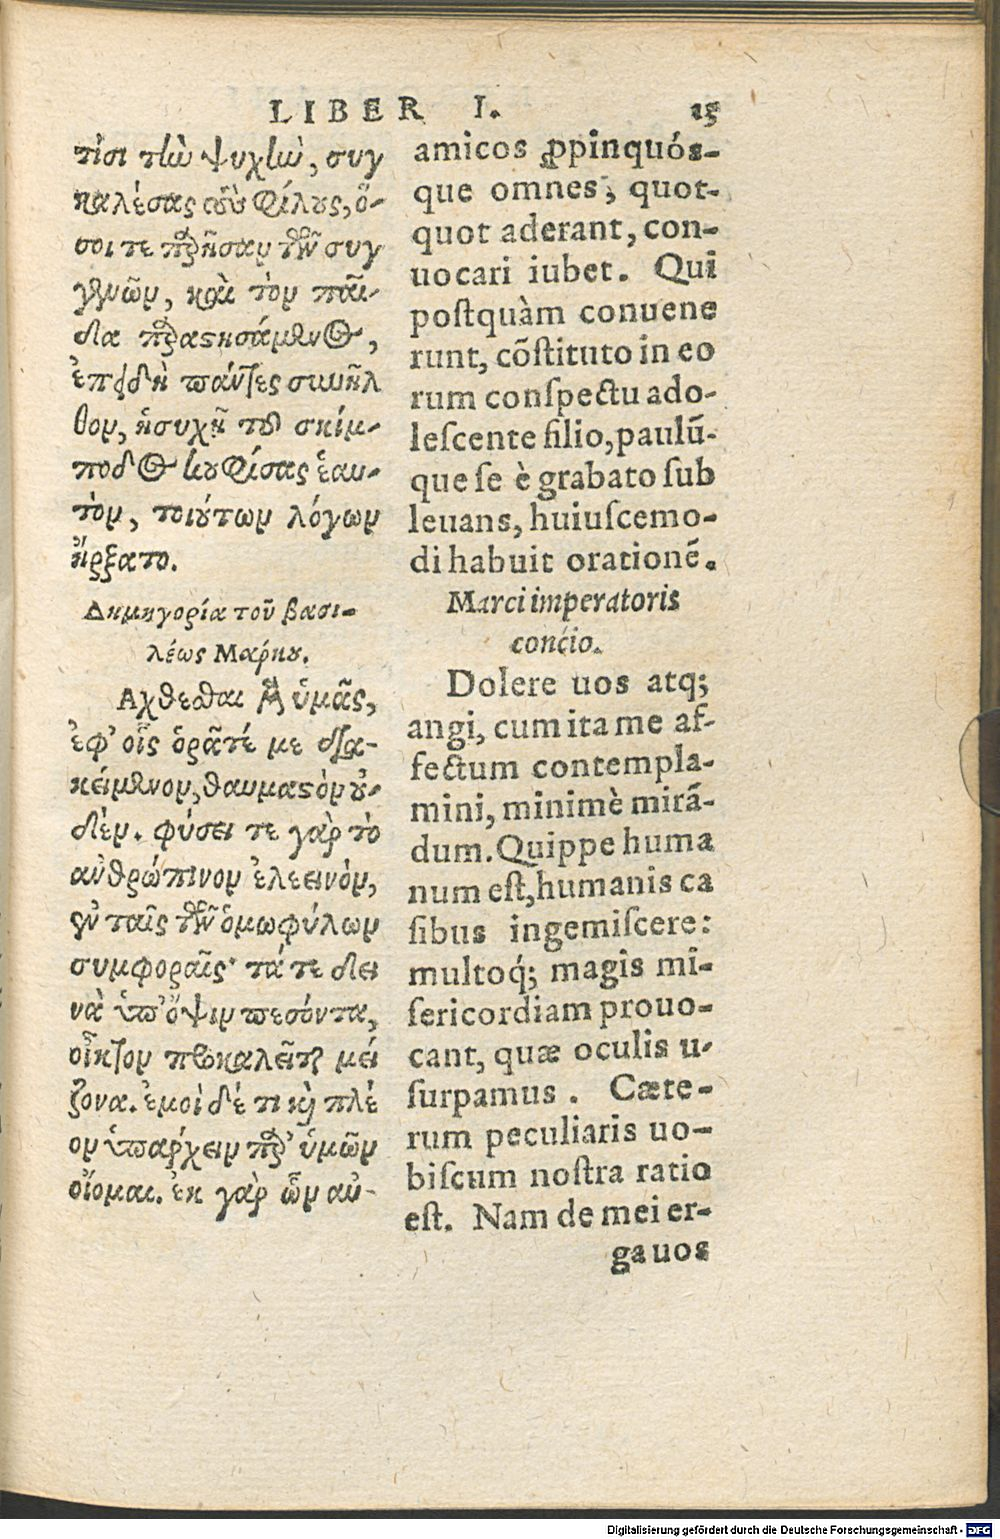 LIBER I. 15
τίσι τὴν ψυχὴν, συγ
καλέσας τοὺς φίλους, ὅ-
σοι τε παρῆσαν τῶν συγ
γενῶν, καὶ τὸν παῖ-
δα παραστησάμενος,
ἐπειδὴ πάντες συνῆλ
θον, ἡσυχῆ τοῦ σκίμ-
ποδος κουφίσας ἑαυ-
τὸν, τοιούτων λόγων
ἤρξατο.
Δημηγορία τοῦ βασι-
λέως Μάρκου.
Αχθεσθαι μὲν ὑμᾶς,
ἐφ' οἷς ὁρᾶτέ με δια-
κείμενον, θαυμαστὸν οὐ-
δέν. φύσει τε γὰρ τὸ
ἀνθρώπινον ἐλεεινὸν,
ἐν ταῖς τῶν ὁμοφύλων
συμφοραῖς· τά τε δει
νὰ ὑπ' ὄψιν πεσόντα,
οἶκτον προκαλεῖται μεί
ζονα. ἐμοὶ δέ τι καὶ πλέ
ον ὑπάρχειν παρ' ὑμῶν
οἴομαι. ἐκ γὰρ ὧν αὐ-
amicos ꝓpinquós-
que omnes, quot-
quot aderant, con-
uocari iubet. Qui
postquàm conuene
runt, cōstituto in eo
rum conspectu ado-
lescente filio, paulū-
que se è grabato sub
leuans, huiuscemo-
di habuit orationē.
Marci imperatoris
concio.
Dolere uos atq;
angi, cum ita me af-
fectum contempla-
mini, minimè mirā-
dum. Quippe huma
num est, humanis ca
sibus ingemiscere:
multoq́; magis mi-
sericordiam prouo-
cant, quæ oculis u-
surpamus. Cæte-
rum peculiaris uo-
biscum nostra ratio
est. Nam de mei er-
ga uos
Digitalisierung gefördert durch die Deutsche Forschungsgemeinschaft - DFG